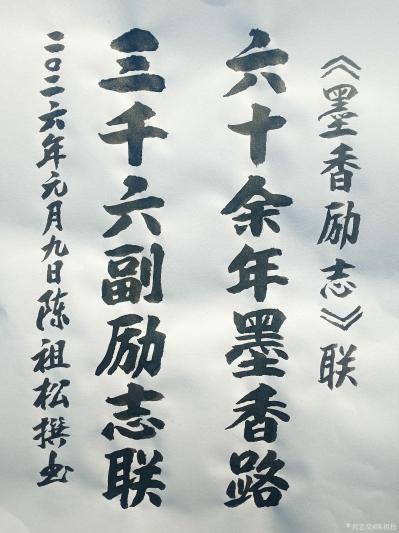 《墨香励志》联
六十余年墨香路
三千六副励志联
二〇二六年元月九日陈祖松撰书